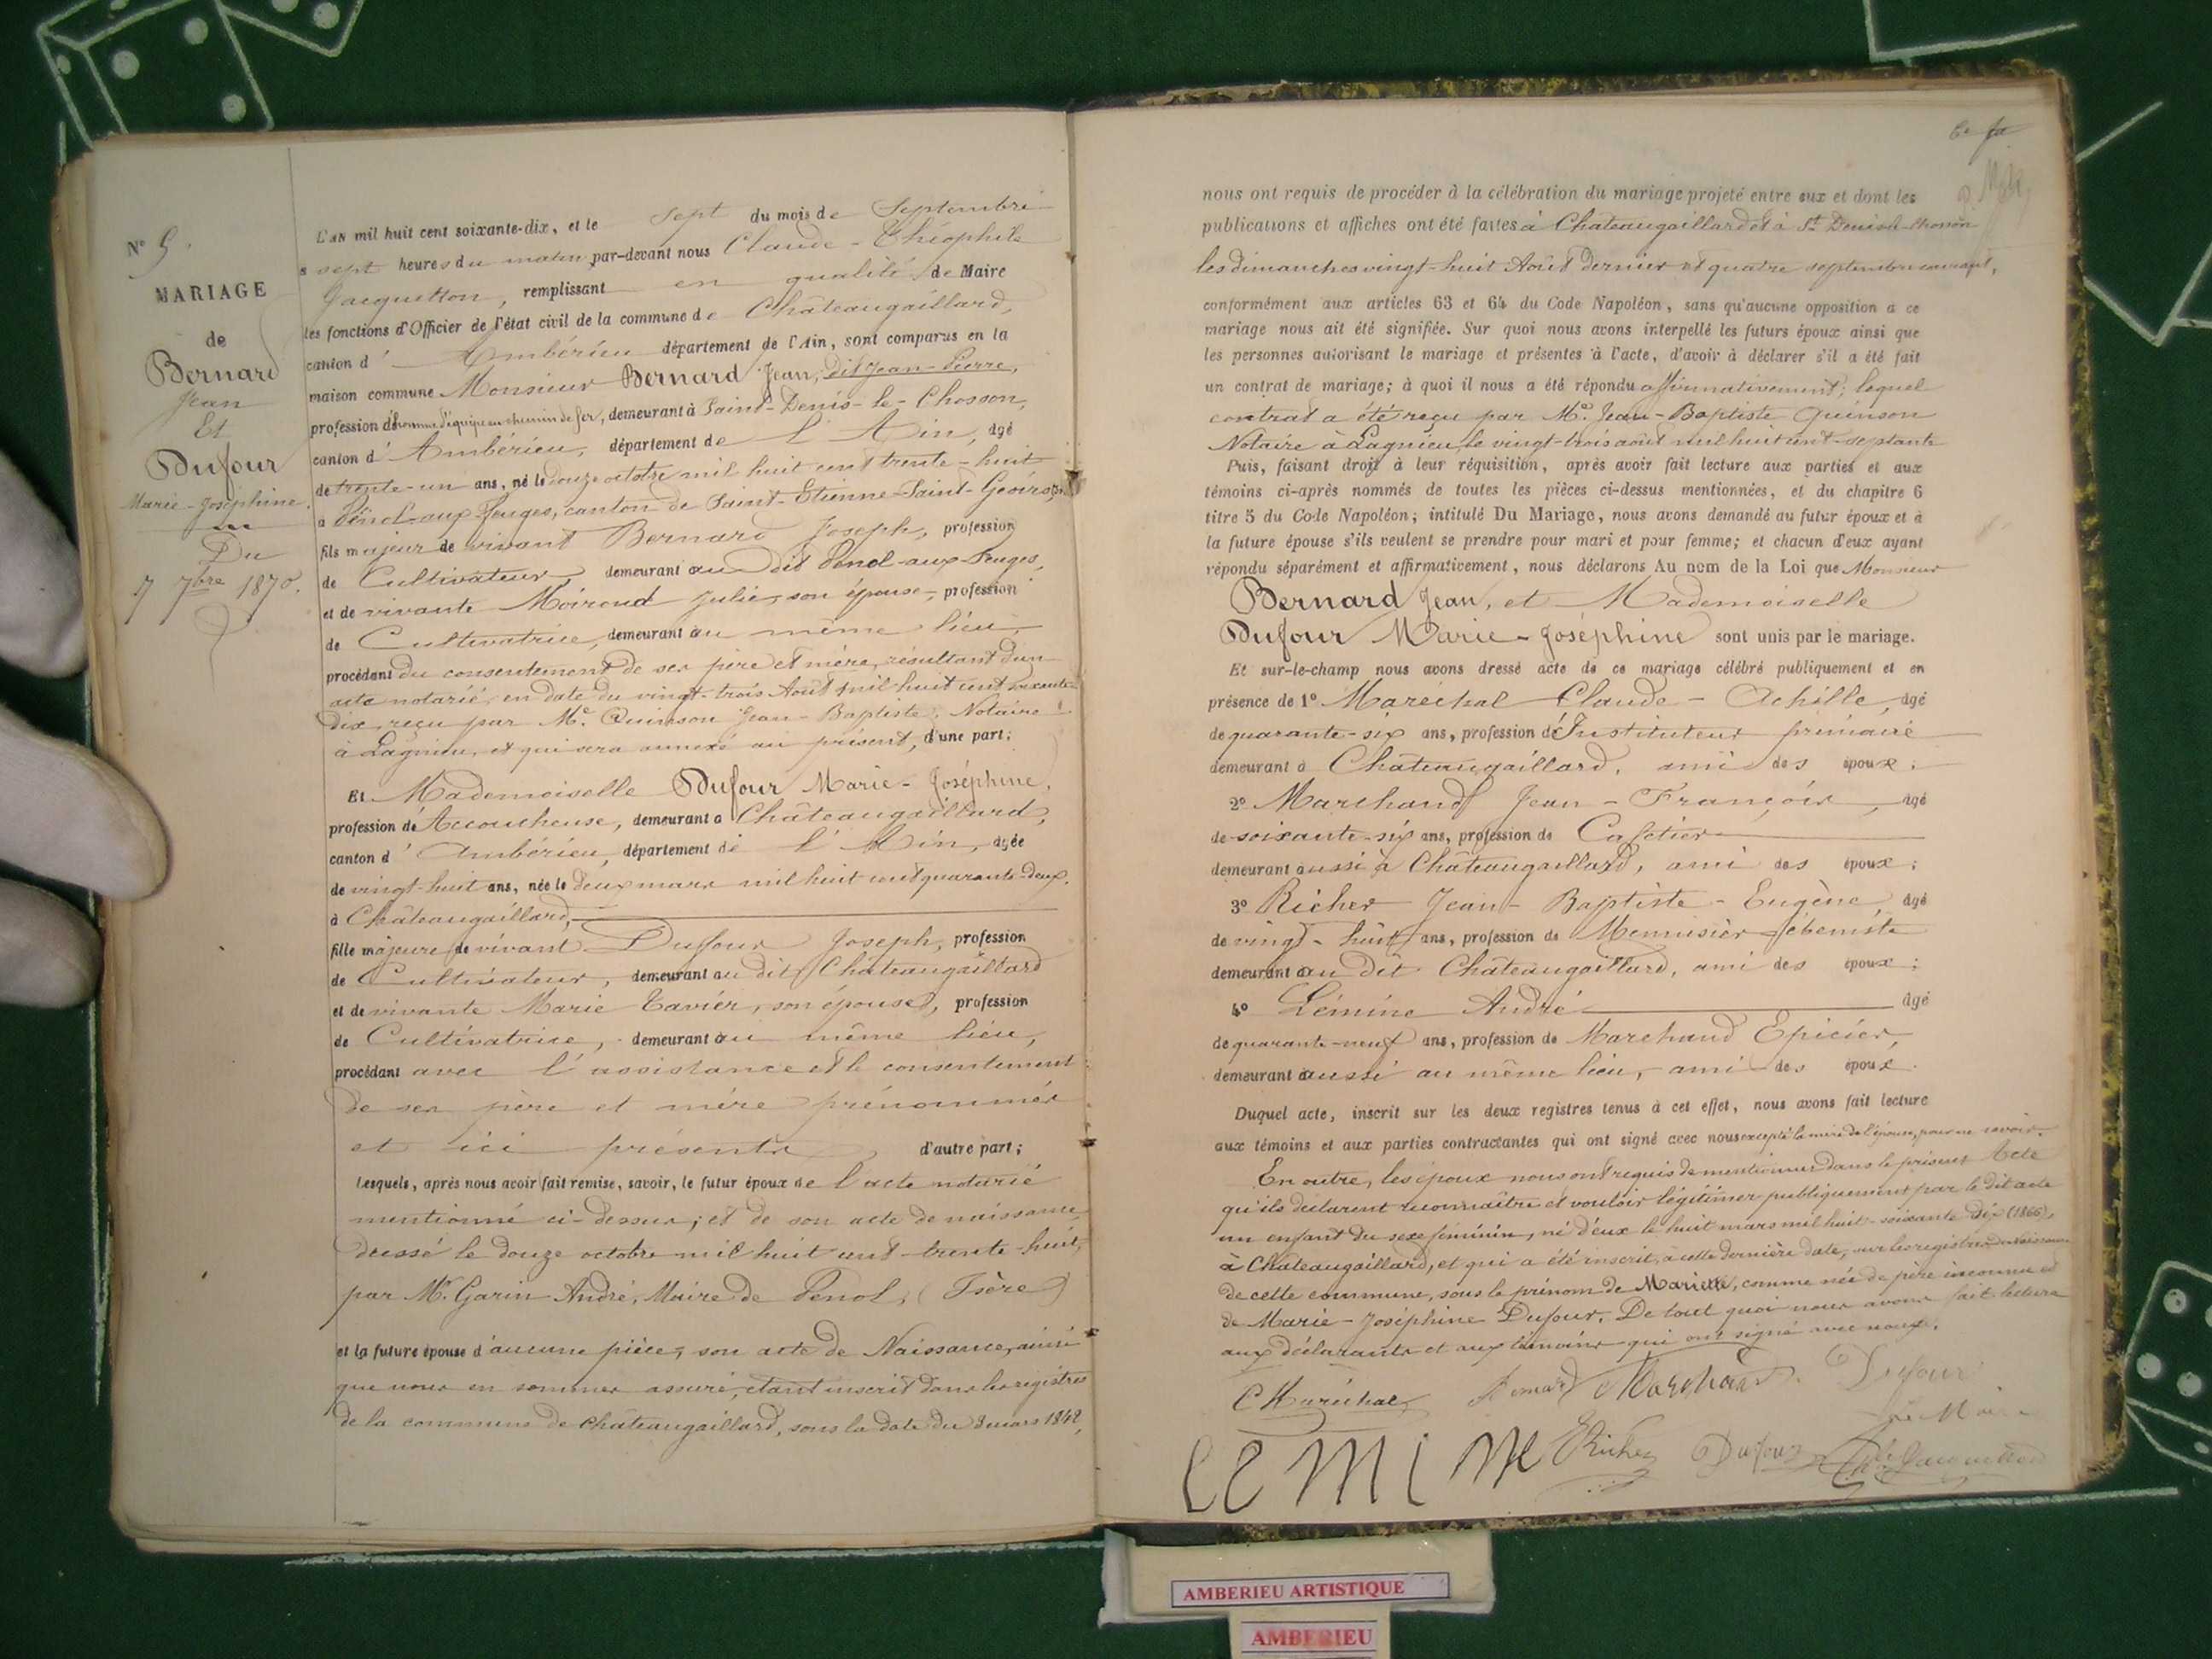 N° 5.
MARIAGE
de
Bernard
Jean
Et
Dufour
Marie-Joséphine.
Du
7 7bre 1870.
L'AN mil huit cent soixante-dix, et le sept du mois de Septembre
à sept heures du matin par-devant nous Claude-Théophile
Jacquetton, remplissant en qualité de Maire
les fonctions d'Officier de l'état civil de la commune de Châteaugaillard,
canton d'Ambérieu département de l'Ain, sont comparus en la
maison commune Monsieur Bernard Jean, dit Jean-Pierre,
profession d'homme d'équipe au chemin de fer, demeurant à Saint-Denis-le-Chosson,
canton d'Ambérieu, département de l'Ain, âgé
de trente-un ans, né le douze octobre mil huit cent trente-huit
à Penol-aux-Fenges, canton de Saint-Etienne-Saint-Geoirs,
fils majeur de vivant Bernard Joseph, profession
de Cultivateur, demeurant au dit Penol-aux-Fenges,
et de vivante Moiroud Julie, son épouse, profession
de Cultivatrice, demeurant au même lieu,
procédant du consentement de ses père et mère, résultant d'un
acte notarié, en date du vingt-trois Août mil huit cent soixante-
dix, reçu par Me. Quinson Jean-Baptiste, Notaire
à Lagnieu, et qui sera annexé au présent, d'une part;
Et Mademoiselle Dufour Marie-Joséphine,
profession d'Accoucheuse, demeurant à Châteaugaillard,
canton d'Ambérieu, département de l'Ain, âgée
de vingt-huit ans, née le deux mars mil huit cent quarante-deux,
à Châteaugaillard,
fille majeure de vivant Duffour Joseph, profession
de Cultivateur, demeurant au dit Châteaugaillard
et de vivante Marie Tavier, son épouse, profession
de Cultivatrice, demeurant au même lieu,
procédant avec l'assistance et le consentement
de ses père et mère prénommés
et ici présents, d'autre part;
Lesquels, après nous avoir fait remise, savoir, le futur époux de l'acte notarié
mentionné ci-dessus; et de son acte de naissance
dressé le douze octobre mil huit cent trente-huit,
par M. Garin André, Maire de Penol, (Isère)
et la future épouse d'aucune pièce, son acte de Naissance, ainsi
que nous en sommes assuré, étant inscrit dans les registres
de la commune de Châteaugaillard, sous la date du 3 mars 1842,
nous ont requis de procéder à la célébration du mariage projeté entre eux et dont les
publications et affiches ont été faites à Chateaugaillard et à St. Denis-le-Chosson
les dimanches vingt-huit Août dernier et quatre septembre courant,
conformément aux articles 63 et 64 du Code Napoléon, sans qu'aucune opposition a ce
mariage nous ait été signifiée. Sur quoi nous avons interpellé les futurs époux ainsi que
les personnes autorisant le mariage et présentes à l'acte, d'avoir à déclarer s'il a été fait
un contrat de mariage; à quoi il nous a été répondu affirmativement; lequel
contrat a été reçu par Me. Jean-Baptiste Quinson
Notaire à Lagnieu, le vingt-trois août mil huit cent-septante
Puis, faisant droit à leur réquisition, après avoir fait lecture aux parties et aux
témoins ci-après nommés de toutes les pièces ci-dessus mentionnées, et du chapitre 6
titre 5 du Code Napoléon; intitulé Du Mariage, nous avons demandé au futur époux et à
la future épouse s'ils veulent se prendre pour mari et pour femme; et chacun d'eux ayant
répondu séparément et affirmativement, nous déclarons Au nom de la Loi que Monsieur
Bernard Jean, et Mademoiselle
Dufour Marie-Joséphine sont unis par le mariage.
Et sur-le-champ nous avons dressé acte de ce mariage célébré publiquement et en
présence de 1° Maréchal Claude-Achille, âgé
de quarante-six ans, profession d'Instituteur primaire
demeurant à Châteaugaillard, ami des époux;
2° Marchand Jean-François, âgé
de soixante-six ans, profession de Cafetier
demeurant aussi à Châteaugaillard, ami des époux;
3° Richer Jean-Baptiste-Eugène, âgé
de vingt-huit ans, profession de Menuisier-ébéniste
demeurant au dit Châteaugaillard, ami des époux;
4° Lémine André âgé
de quarante-neuf ans, profession de Marchand Epicier,
demeurant aussi au même lieu, ami des époux.
Duquel acte, inscrit sur les deux registres tenus à cet effet, nous avons fait lecture
aux témoins et aux parties contractantes qui ont signé avec nous excepté la mère de l'épouse, pour ne savoir.
En outre, les époux nous ont requis de mentionner dans le présent Acte
qu'ils déclarent reconnaître et vouloir légitimer publiquement par le dit acte
un enfant du sexe féminin, né d'eux le huit mars mil huit-soixante-dix (1866),
à Châteaugaillard, et qui a été inscrit, à cette dernière date, sur les registres de Naissances
de cette commune, sous le prénom de Mariette, comme née de père inconnu et
de Marie-Joséphine Dufour. De tout quoi nous avons fait lecture
aux déclarants et aux témoins qui ont signé avec nous.
C Maréchal Bernard Marchand Dufour
Le Maire
Lemine E Richer Dufour Jacquetton
AMBERIEU ARTISTIQUE
AMBERIEU